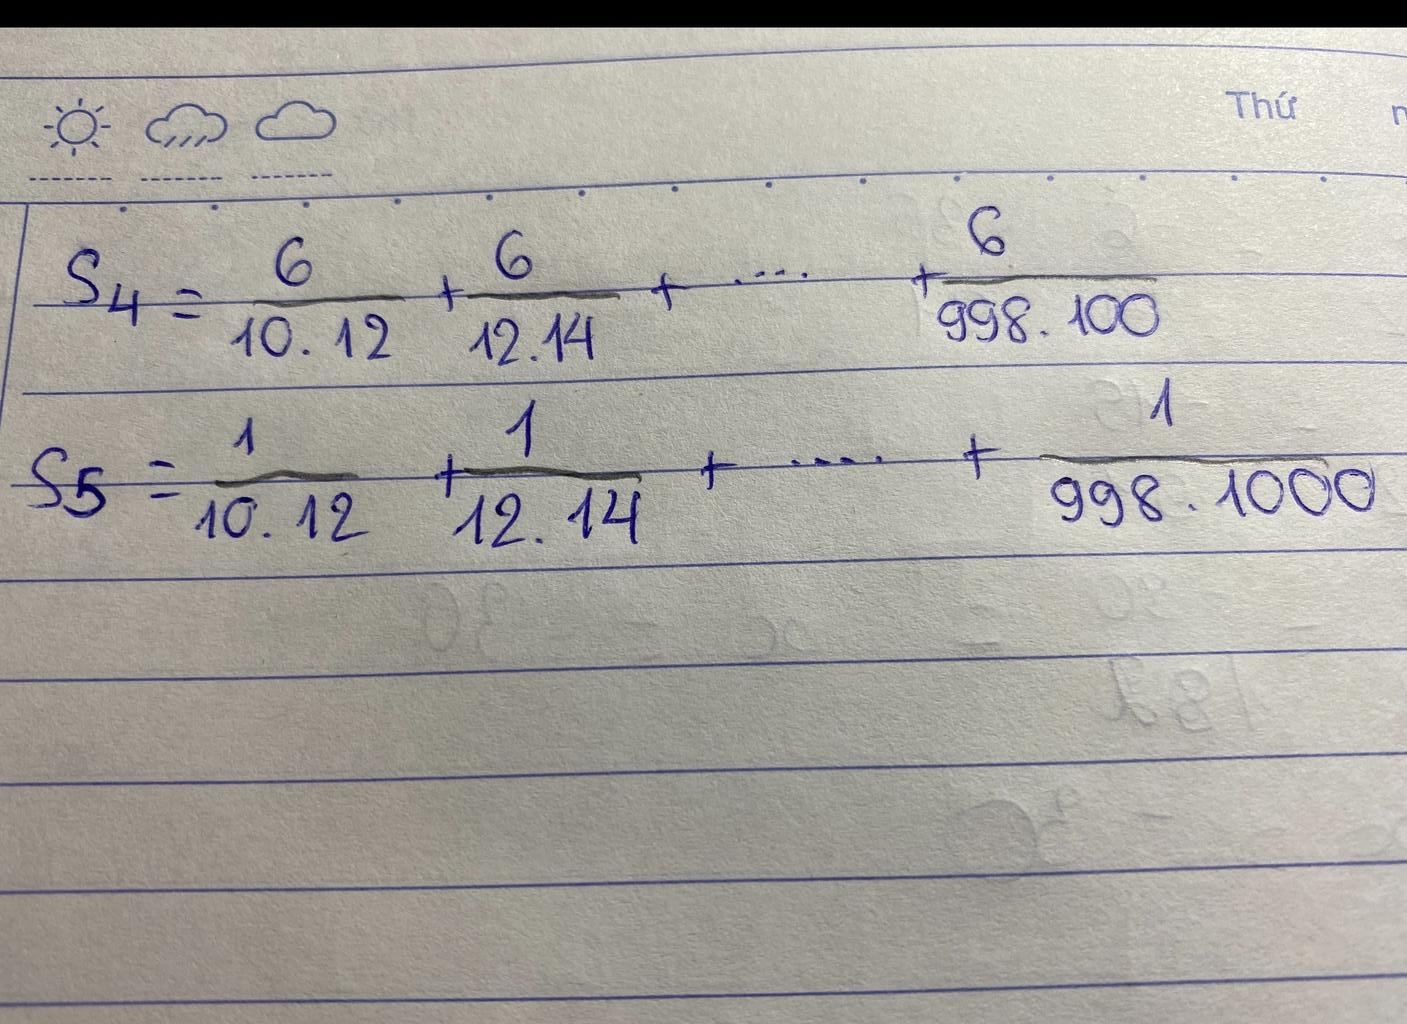 Thứ
S4 = 6/10.12 + 6/12.14 + .... + 6/998.100
S5 = 1/10.12 + 1/12.14 + .... + 1/998.1000